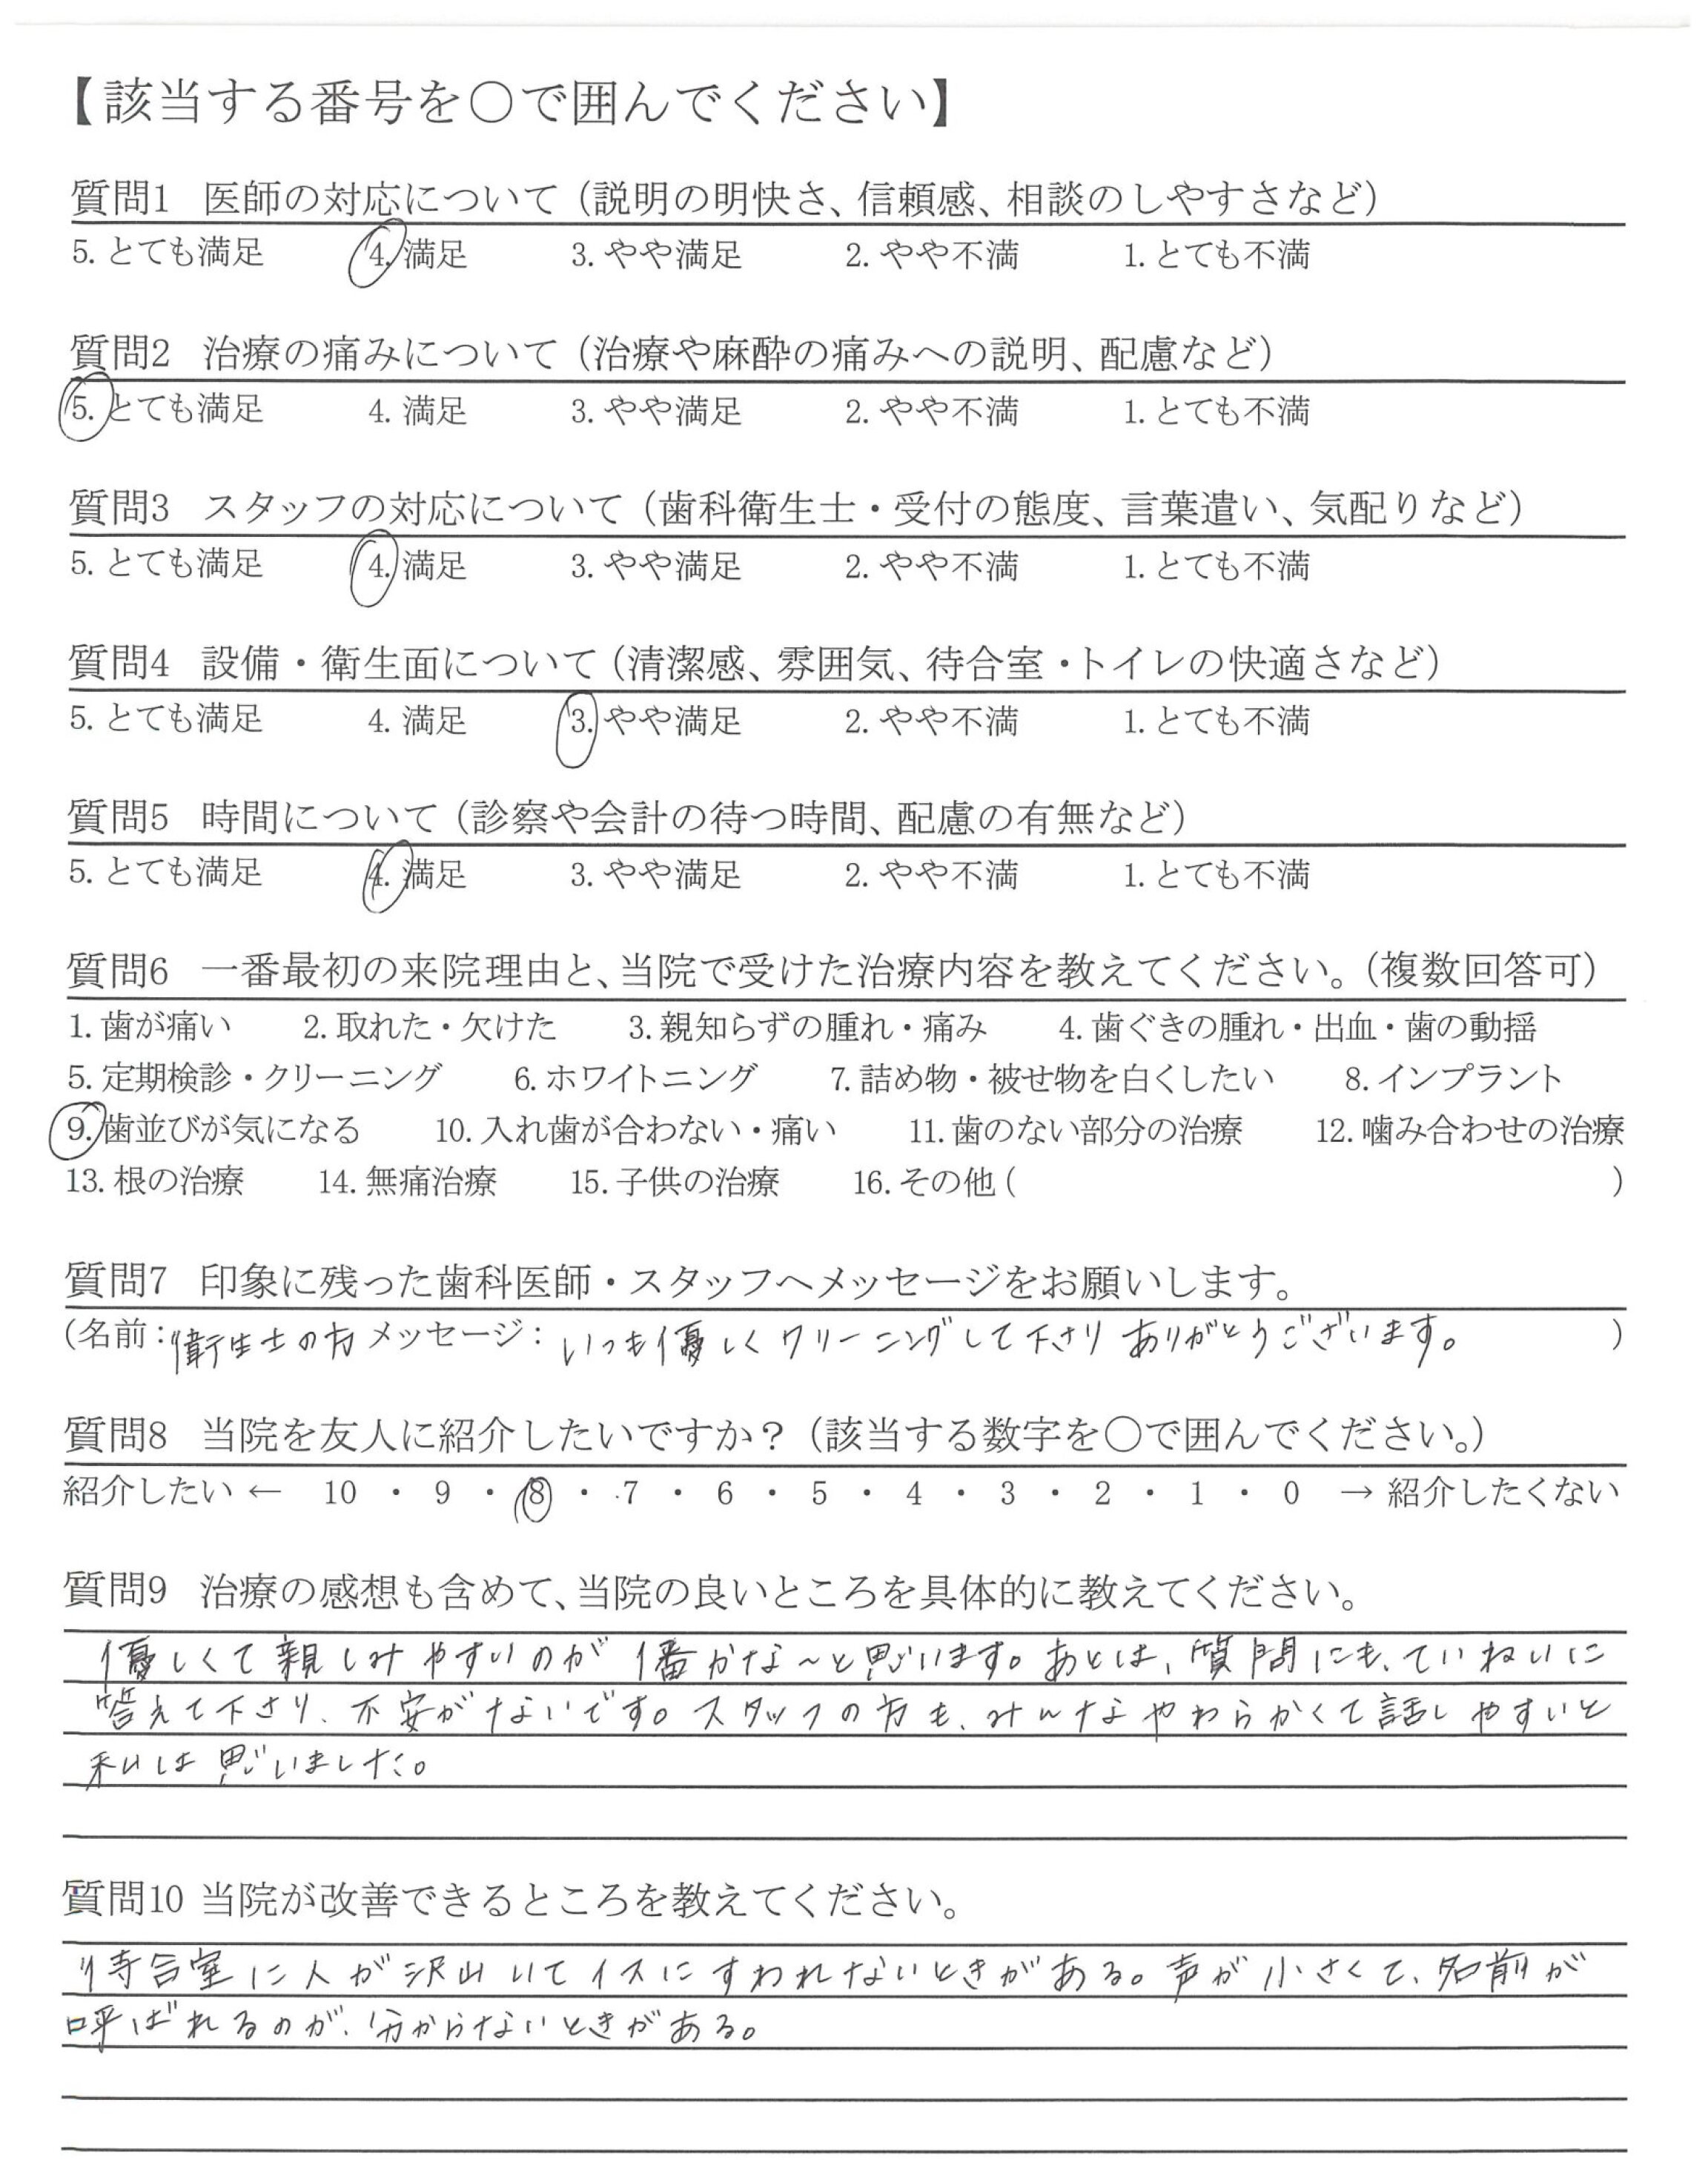 【該当する番号を○で囲んでください】
質問1 医師の対応について（説明の明快さ、信頼感、相談のしやすさなど）
5. とても満足 4. 満足 3. やや満足 2. やや不満 1. とても不満
質問2 治療の痛みについて（治療や麻酔の痛みへの説明、配慮など）
5. とても満足 4. 満足 3. やや満足 2. やや不満 1. とても不満
質問3 スタッフの対応について（歯科衛生士・受付の態度、言葉遣い、気配りなど）
5. とても満足 4. 満足 3. やや満足 2. やや不満 1. とても不満
質問4 設備・衛生面について（清潔感、雰囲気、待合室・トイレの快適さなど）
5. とても満足 4. 満足 3. やや満足 2. やや不満 1. とても不満
質問5 時間について（診察や会計の待つ時間、配慮の有無など）
5. とても満足 4. 満足 3. やや満足 2. やや不満 1. とても不満
質問6 一番最初の来院理由と、当院で受けた治療内容を教えてください。（複数回答可）
1. 歯が痛い 2. 取れた・欠けた 3. 親知らずの腫れ・痛み 4. 歯ぐきの腫れ・出血・歯の動揺
5. 定期検診・クリーニング 6. ホワイトニング 7. 詰め物・被せ物を白くしたい 8. インプラント
9. 歯並びが気になる 10. 入れ歯が合わない・痛い 11. 歯のない部分の治療 12. 噛み合わせの治療
13. 根の治療 14. 無痛治療 15. 子供の治療 16. その他（ ）
質問7 印象に残った歯科医師・スタッフへメッセージをお願いします。
（名前：衛生士の方 メッセージ：いつも優しくクリーニングして下さりありがとうございます。 ）
質問8 当院を友人に紹介したいですか？（該当する数字を○で囲んでください。）
紹介したい ← 10 ・ 9 ・ 8 ・ 7 ・ 6 ・ 5 ・ 4 ・ 3 ・ 2 ・ 1 ・ 0 → 紹介したくない
質問9 治療の感想も含めて、当院の良いところを具体的に教えてください。
優しくて親しみやすいのが1番かな〜と思います。あとは、質問にも、ていねいに
答えて下さり、不安がないです。スタッフの方も、みんなやわらかくて話しやすいと
私は思いました。
質問10 当院が改善できるところを教えてください。
待合室に人が沢山いてイスにすわれないときがある。声が小さくて、名前が
呼ばれるのが、分からないときがある。